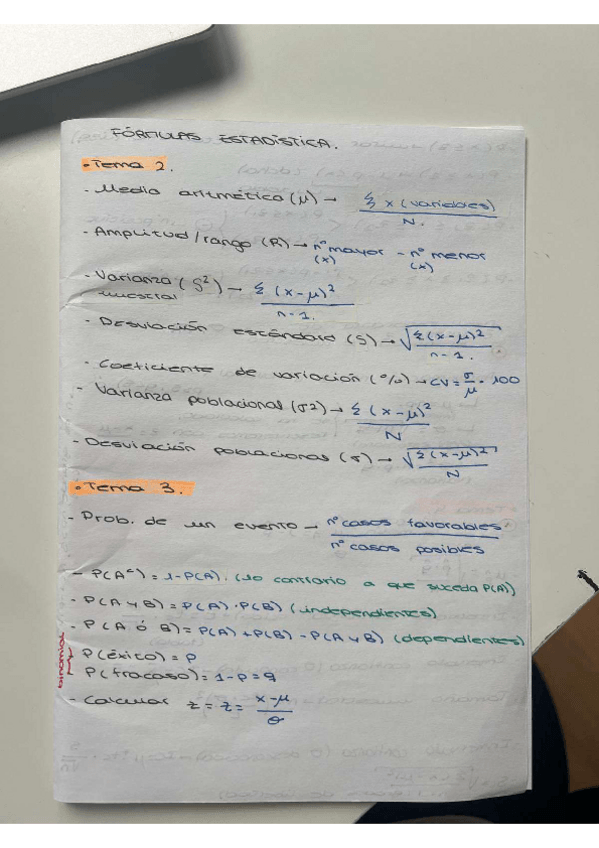 FÓRMULAS ESTADÍSTICA.
• Tema 2.
- Media aritmética (μ) → Σ x (variables) / N.
- Amplitud/rango (R) → nº mayor (x) - nº menor (x)
- Varianza (S²) → Σ (x-μ)² / n-1.
muestral
- Desviación estándar (S) → √ Σ(x-μ)² / n-1.
- Coeficiente de variación (%) → CV = σ/μ · 100
- Varianza poblacional (σ2) → Σ (x-μ)² / N
- Desviación poblacional (σ) → √ Σ(x-μ)² / N
• Tema 3.
- Prob. de un evento → nº casos favorables / nº casos posibles
- P(Aᶜ) = 1-P(A). (lo contrario a que suceda P(A))
- P(A y B) = P(A) · P(B) (independientes)
- P(A ó B) = P(A) + P(B) - P(A y B) (dependientes)
binomial
P(éxito) = P
P(fracaso) = 1-P = q
- Calcular z = z = x-μ / σ